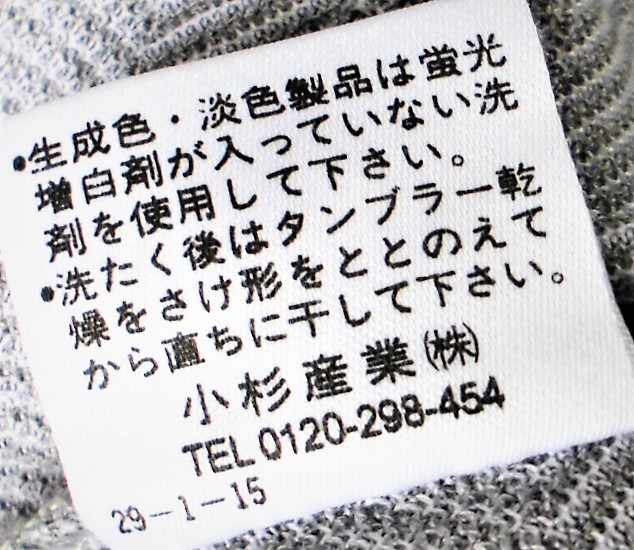 •生成色・淡色製品は蛍光
増白剤が入っていない洗
剤を使用して下さい。
•洗たく後はタンブラー乾
燥をさけ形をととのえて
から直ちに干して下さい。
小杉産業㈱
TEL 0120-298-454
29-1-15